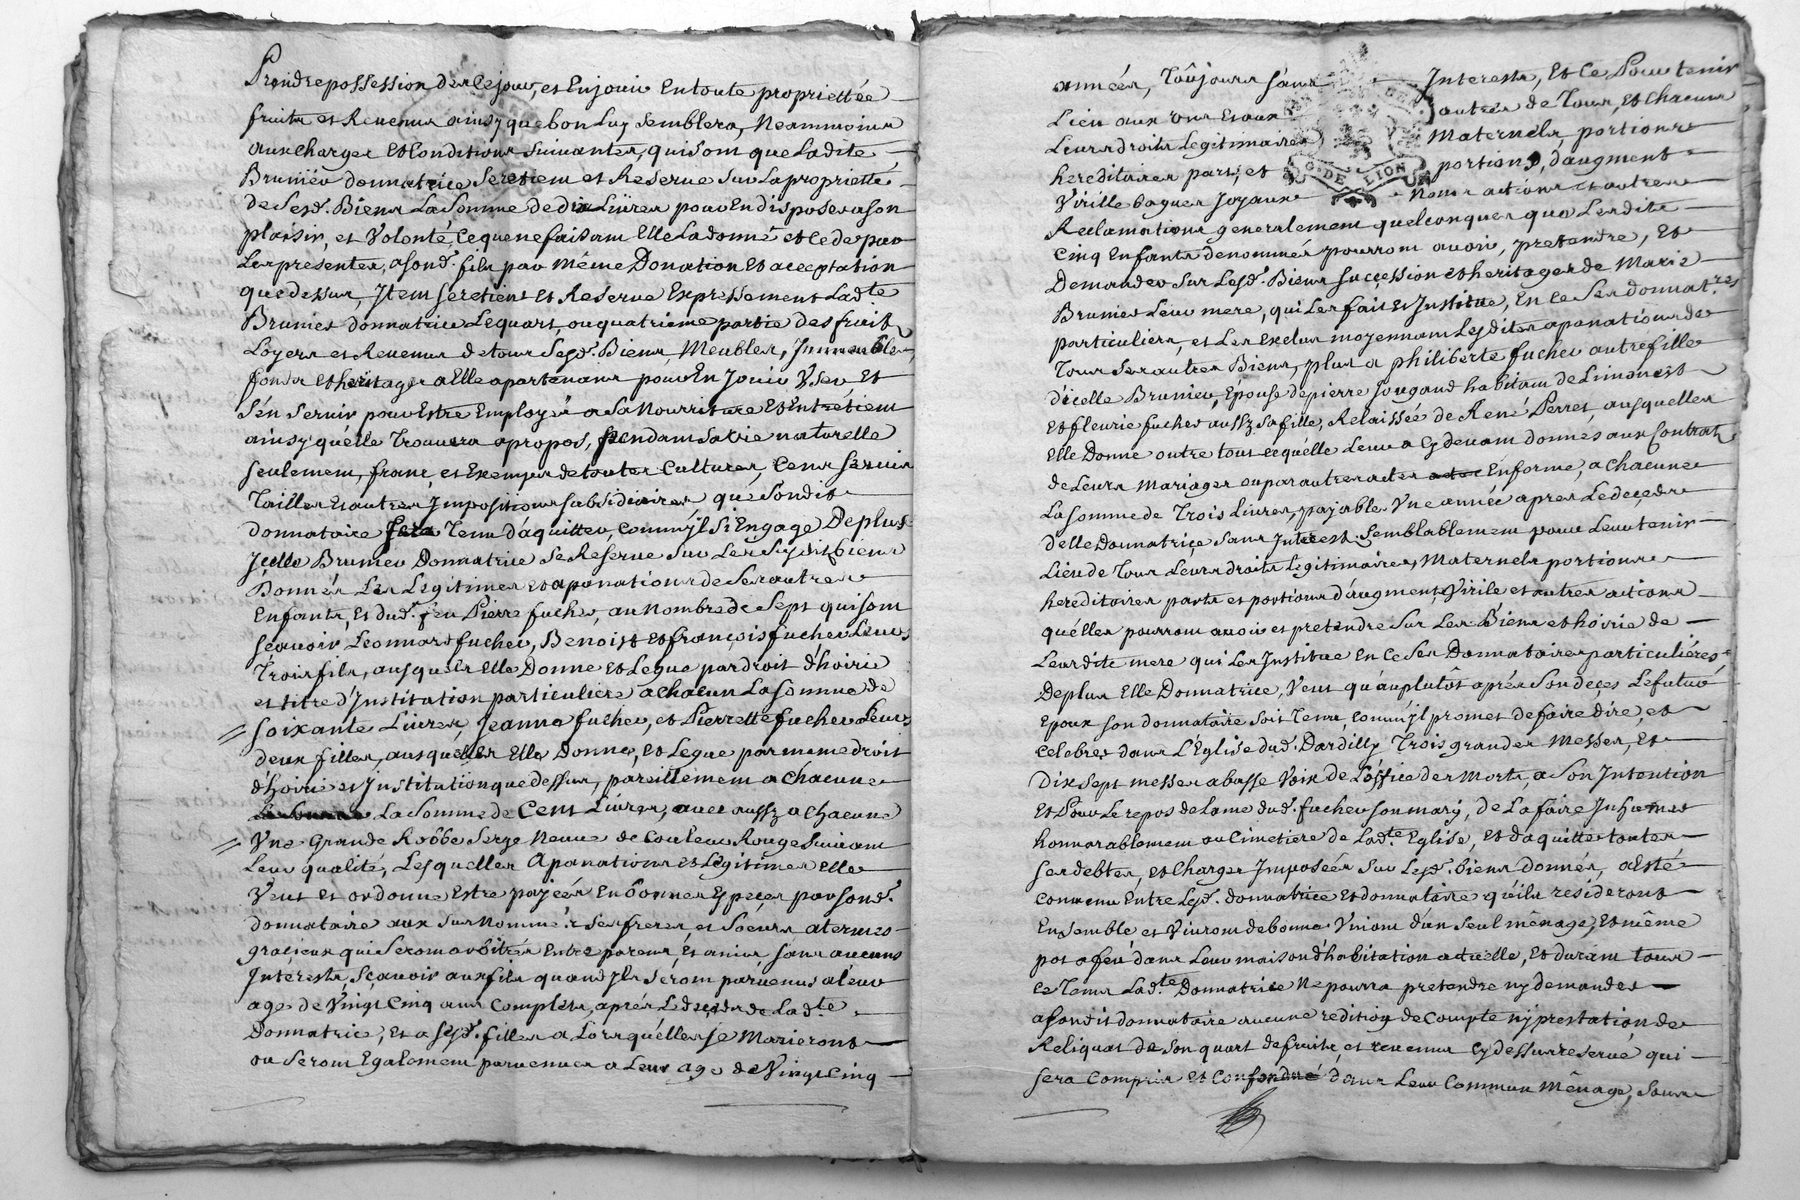 Prendre possession des ce jour, et En jouir En toute proprietée
fruits et Revenus ainsy que bon Luy semblera, Neammoins
aux charges Et Conditions suivantes, qui sont que Ladite
Brunier donnatrice se retient et Reserve sur La propriette
de Sesd. Biens La Somme de dix Livres pour En disposer a son
plaisir, et Volonté, Ce que ne faisant Elle La donne et ce de par
Les presentes, a sond. fils par même Donation Et acceptation
que dessus, Jtem se retient et Reserve Expressement Lad.te
Brunier donnatrice Le quart, ou quatrieme partie des fruits
Loyers et Revenus de tous Sesd. Biens, Meubles, Jmmeubles,
fonds et heritages a Elle apartenans pour En Jouir User, Et
S'en Servir pour Estre Employé a Sa Nourriture Et Entrétient
ainsy qu'elle Trouvera apropos, pendant Sa vie naturelle
seulement, franc, et Exempts de toutes Cultures, Cens Servis
Tailles et autres Jmpositions Subsidiaires que Sondit
donnataire Sera Tenu d'aquitter, comm'jl Si Engage, De plus
Jcelle Brunier Donnatrice Se Reserve Sur Les Susdits biens
Donnés Les Legitimes et apanations de Ses autres
Enfants, Et dud. feu Pierre fucher, au Nombre de Sept qui sont
sçavoir Leonnard fucher, Benoist et françois fucher Leurs
Trois fils, ausquels Elle Donne et Legue par droit d'hoirie
et titre d'Institution particuliere a chacun La somme de
Soixante Livres, Jeanne fucher, et Pierrette fucher Leurs
deux filles, ausquelles Elle Donne, et Legue par meme droit
d'hoirie et Jnstitution que dessus, pareillement a Chacune
La Somme de Cent Livres, avec aussy a Chacune
Une Grande Robbe Serge Neuve de Couleur Rouge Suivant
Leur qualité, Lesquelles Apanations et Légitimes Elle
Veut et ordonne Estre payées En Bonnes Especes par sond.
donnataire aux Sus Nommés Ses freres et Soeurs a termes
gracieux qui Seront arbitrés Entre parens, et amis sans aucuns
Jntérests, Sçavoir aux fils quand Jls seront parvenus a Leur
age de Vingt Cinq ans Complets, aprés Le decés de Lad.te
Donnatrice, Et a sesd. filles a Lors qu'elles Se Marieront
ou Seront Egalement parvenues a Leur age de Vingt Cinq
années, Toûjours sans Interests, Et Ce Pour tenir
Lieu aux Uns Et aux autres de Tous, Et Chacuns
Leurs droits Legitimaires Maternels, portions
hereditaires part, et portions, d'augment
Virille bagues Joyaux Noms actions et autres
Reclamations generalement quelconques que Lesdits
Cinq Enfants denommés pourront avoir, pretendre, Et
Demander Sur Lesd. Biens succession et heritages de Marie
Brunier Leur mere, qui Les fait et Jnstitue, En Ce Ses donnat.res
particuliers, et Les Exclus moyennant Lesdites apanations de
Tous Ses autres Biens, plus a philiberte fucher autre fille
d'icelle Brunier, Épouse de pierre Jougand habitant de Limonest
Et fleurie fucher aussy sa fille, Relaissée de René Perret, ausquelles
Elle Donne outre tout ce qu'elle Leur a cy devant donnés aux Contrats
de Leurs Mariages ou par autres actes En forme, a Chacune
La somme de Trois Livres, payable Une année apres Le deçeds
d'elle Donnatriçe Sans Jnterest. Semblablement pour Leur tenir
Lieu de Tous Leurs droits Legitimaires, Maternels portions
hereditaires parts et portions d'augment Virile et autres actions
qu'elles pourront avoir et pretendre Sur Les Biens et hoirie de
Leurdite mere qui Les Jnstitue En Ce Ses Donnataires particuliéres
De plus Elle Donnatrice, Veut qu'au plutôt aprés Son deçes Le futur
Epoux son donnataire Soit Tenu, comm'jl promet de faire dire, et
celebrer dans L'Eglise dud. Dardilly Trois grandes Messes, Et
Dix Sept messes a basse Voix de L'office des Morts, a Son Jntention
Et Pour Le repos de L'ame dud. fucher Son mary, de La faire Jnhumer
honnorablement au Cimetiere de Lad.te Eglise, Et d'aquitter toutes
Ses debtes, et Charges Jmposées Sur Lesd. biens Donnés, a Esté
Convenu Entre Lesd. donnatrice Et donnataire qu'ils resideront
Ensemble et Vivront de bonne Union d'un Seul ménage, Et même
pot a feu dans Leur maison d'habitation actuelle, Et durant tous
Ce Tems Lad.te Donnatrice Ne pourra pretendre ny demander
a sondit donnataire aucune redition de Compte ny prestation de
Reliquat de son quart de fruits, et revenus Cy dessus reservé qui
sera Compris et Confondue dans Leur Commun Ménage, Sans
DE LION